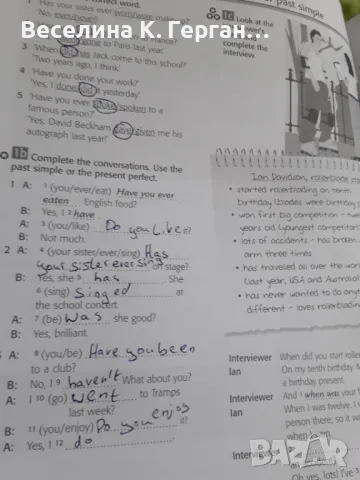 Веселина К. Герган...
past simple
word.
1 Has your sister ever worn/wore make-up?
No, ever/never!
to Paris last year.'
3 'When did/has Jack come to this school?'
'Two years ago, I think.'
4 'Have you done your work?'
'Yes, I done/did it yesterday.'
5 'Have you ever spoke/spoken to a
famous person?'
'Yes, David Beckham gave/given me his
autograph last year!'
1b Complete the conversations. Use the
past simple or the present perfect.
1 A: 1 (you/ever/eat) Have you ever
eaten English food?
B: Yes, I 2 have
A: 3 (you/like) Do you like it?
B: Not much.
2 A: 4 (your sister/ever/sing) Has
your sister ever sing on stage?
B: Yes, she 5 has She
6 (sing) Singed at
the school concert.
A: 7 (be) was she good?
B: Yes, brilliant.
A: 8 (you/be) Have you been
to a club?
B: No, I 9 haven't What about you?
A: I 10 (go) went to Tramps
last week?
B: 11 (you/enjoy) Do you enjoy it?
A: Yes, I 12 do
1c Look at the
complete the
interview.
Ian Davidson, rollerblade
• started rollerblading on tenth
birthday (blades were birthday
• won first big competition - twelve
years old (youngest competitor
• lots of accidents - has broken
arm three times
• has travelled all over the world
(last year, USA and Australia)
• has never wanted to do anything
different - loves rollerblading
Interviewer When did you start
Ian On my tenth birthday.
a birthday present.
Interviewer And 1 when was your
Ian When I was twelve. I
person there, so it was
when
Interviewer
Ian Oh yes, lots! I've